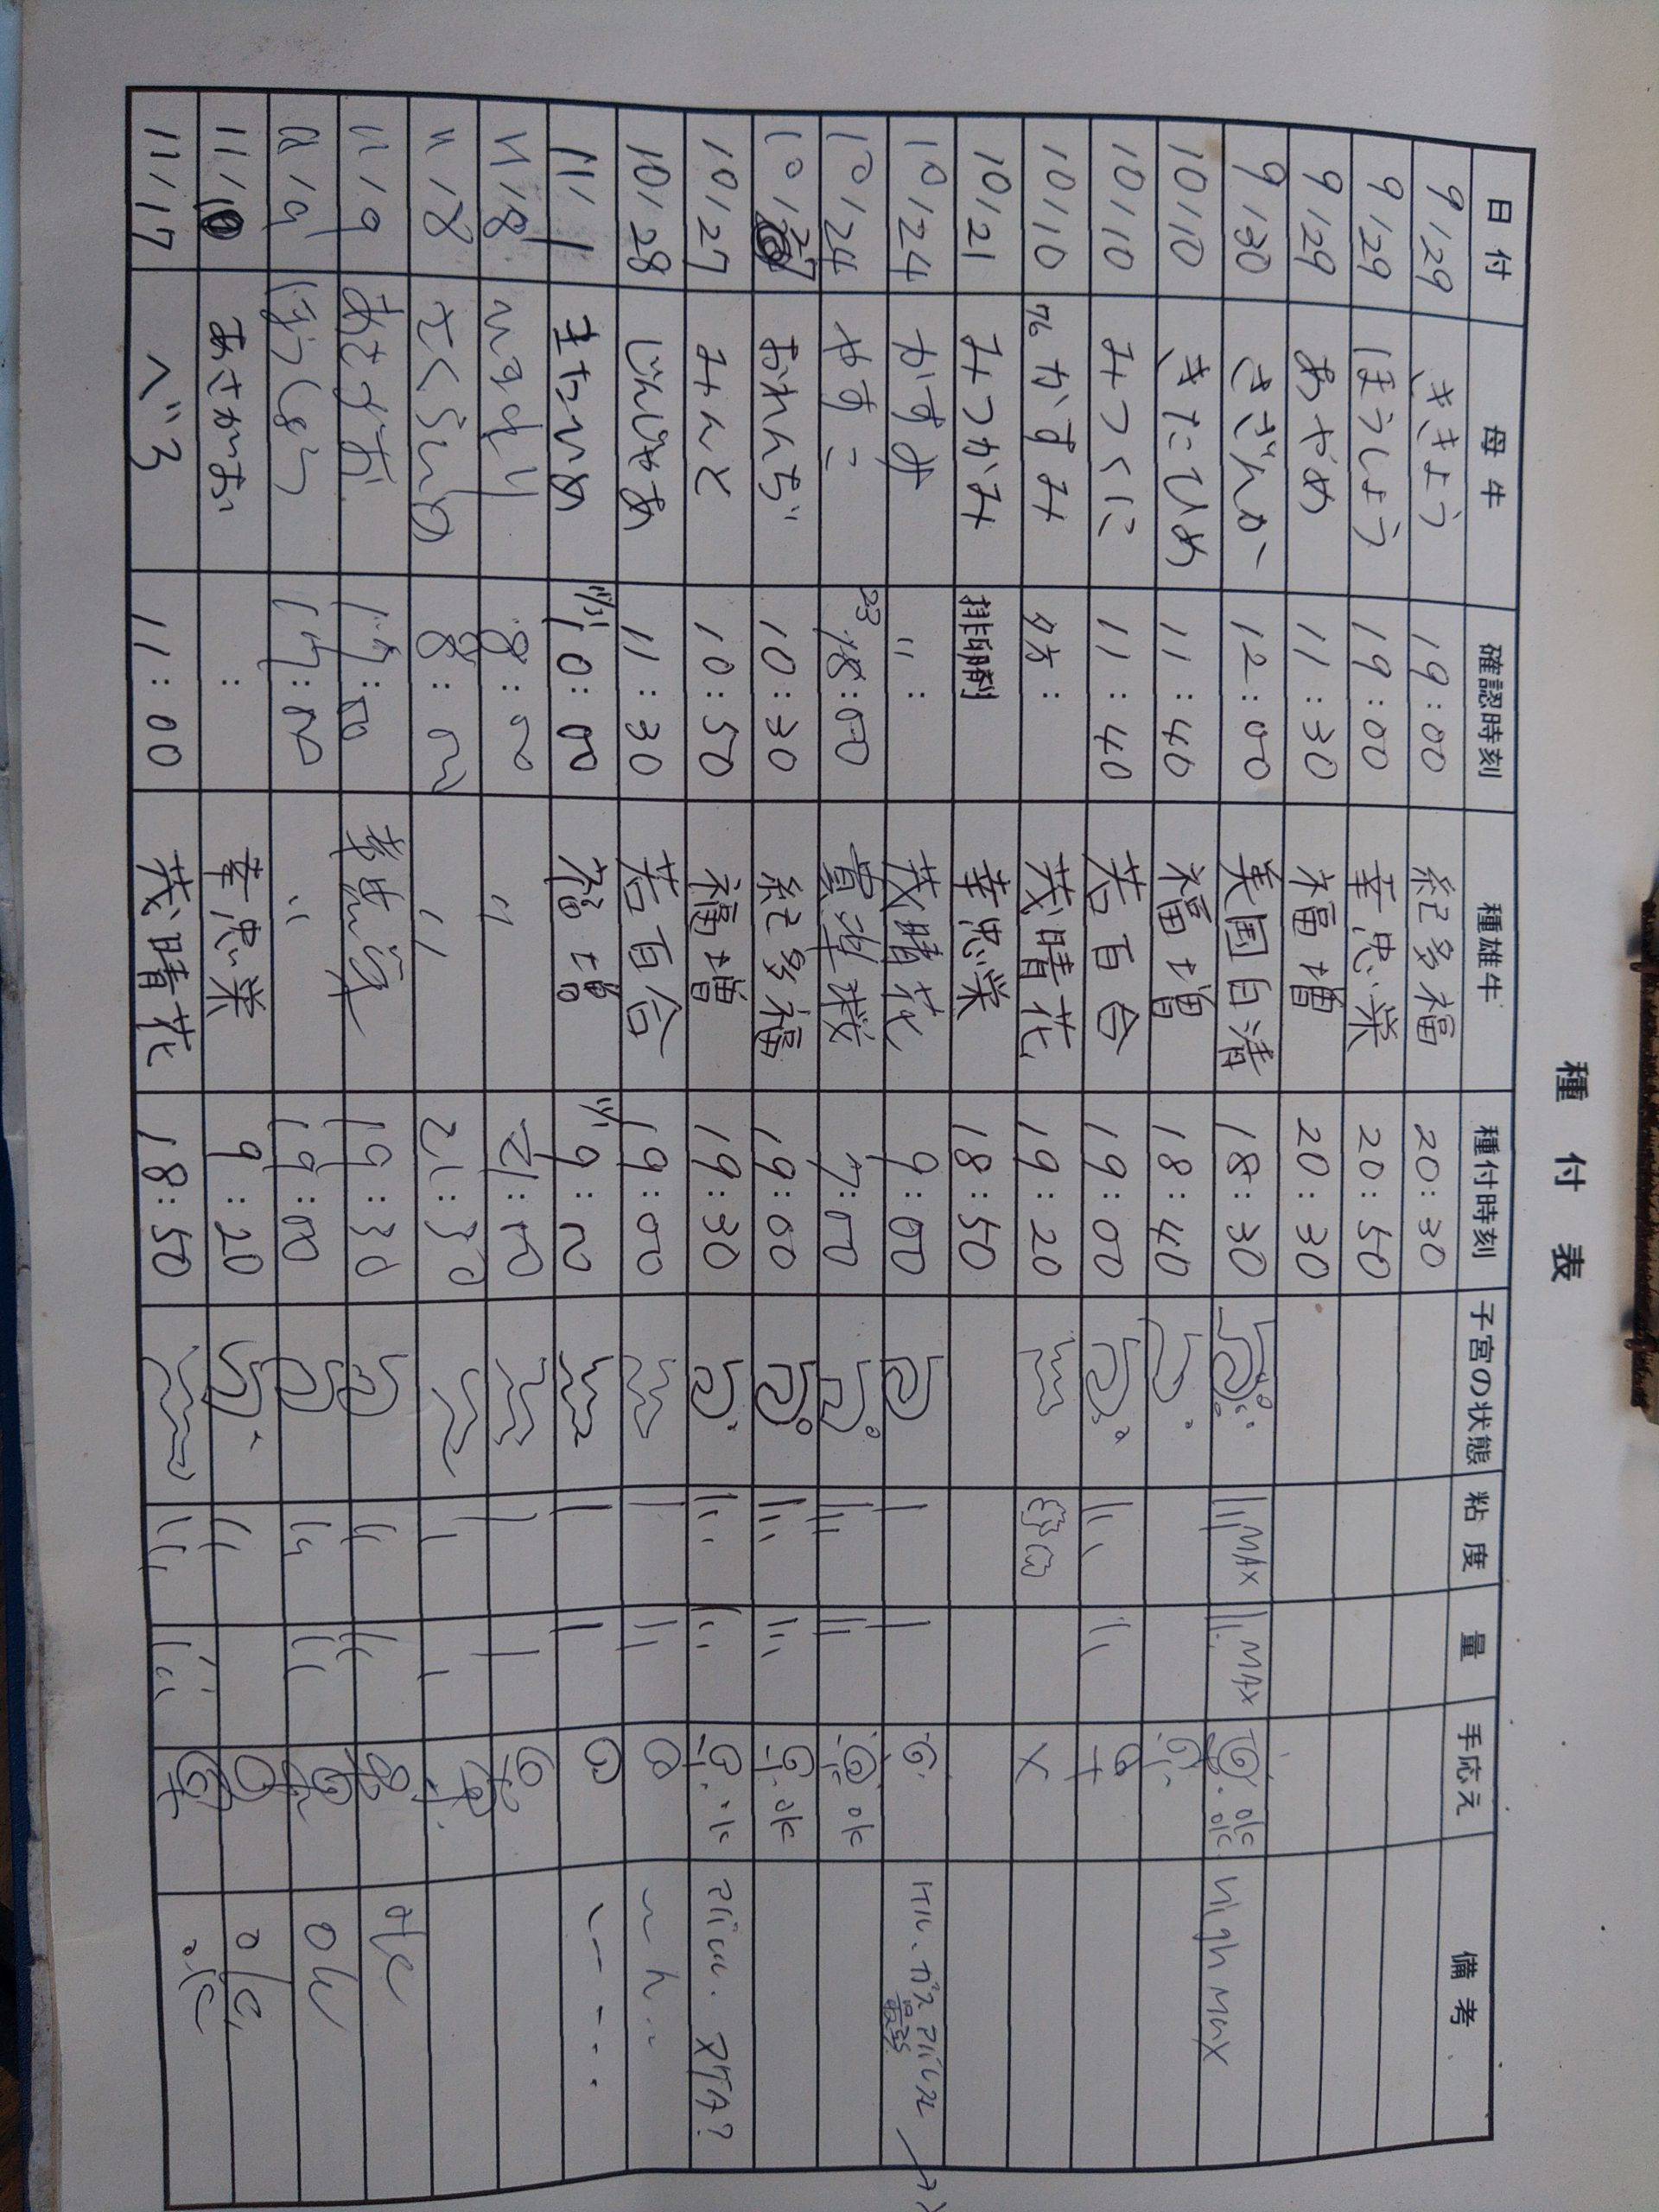 種付表
日付 母牛 確認時刻 種雄牛 種付時刻 子宮の状態 粘度 量 手応え 備考
9/29 ききょう 19:00 紀多福 20:30
9/29 ほうしょう 19:00 幸忠栄 20:50
9/29 あやめ 11:30 福増 20:30
9/30 さざんか 12:00 美国白清 18:30 MAX MAX ok ok High Max
10/10 きたひめ 11:40 福増 18:40
10/10 みつくに 11:40 若百合 19:00
10/10 かすみ 夕方: 茂晴花 19:20 X
10/21 みつがみ 排卵剤 幸忠栄 18:50
10/24 かすみ 〃: 茂晴花 9:00
10/24 やすこ 23 18:00 7:00 ok
10/27 おれんぢ 10:30 紀多福 19:00 ok
10/27 みんと 10:50 福増 19:30 ok
10/28 じんじゃあ 11:30 若百合 19:00
11/1 きたひめ 10:00 福増 11/1 9:20
11/8 8:00 〃 21:00
11/8 さくらひめ 8:00 〃 21:30
11/9 あさがお 17:00 19:30 ok
11/9 17:00 〃 19:00 ok
11/10 あさがお : 幸忠栄 9:20 ok
11/17 べる 11:00 茂晴花 18:50 ok